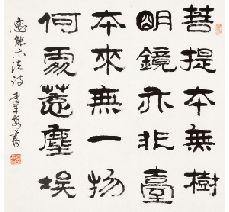 菩提本無樹
明鏡亦非臺
本來無一物
何處惹塵埃
惠能六法诗